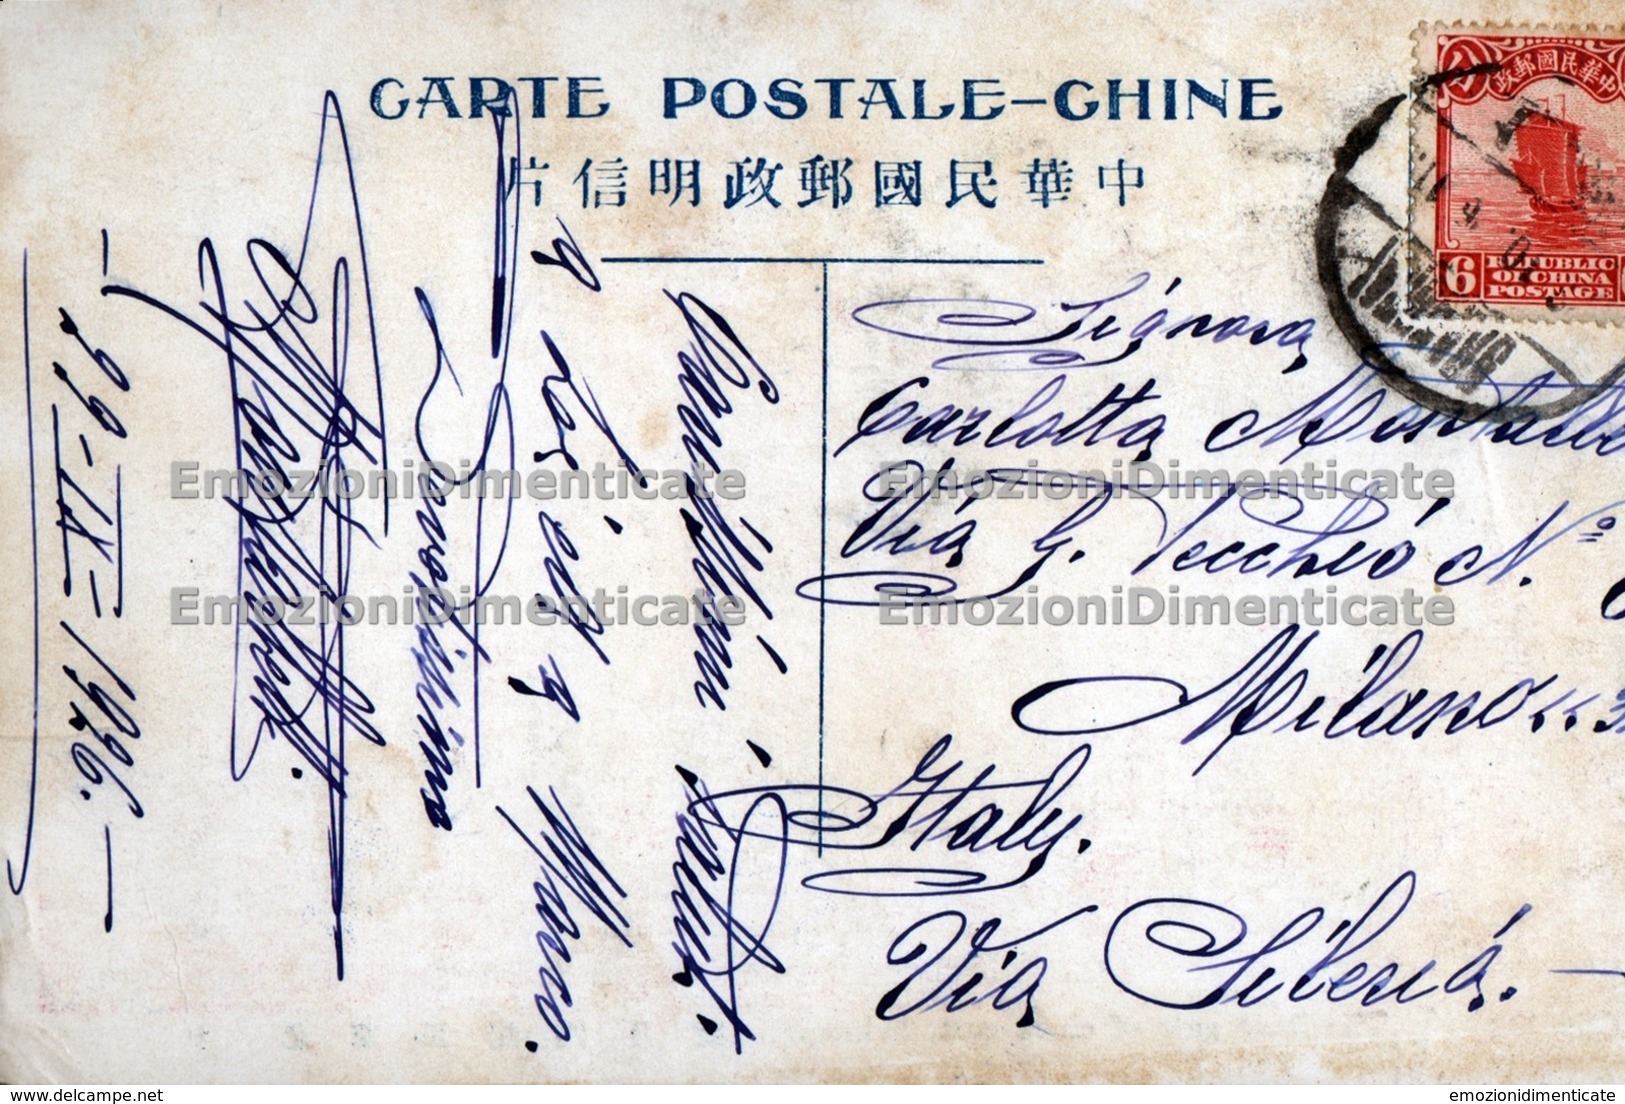 CARTE POSTALE-CHINE
中華民國郵政明信片
中華民國郵政
6
REPUBLIC
OF CHINA
POSTAGE
Signora
Carlotta
Via G. Vecchio N.º
Milano
Italy.
Via Siberia.
Carissimi saluti
a voi e a Marco.
Devotissimo
29-IX-1926.
EmozioniDimenticate
EmozioniDimenticate
EmozioniDimenticate
EmozioniDimenticate
www.delcampe.net
emozionidimenticate